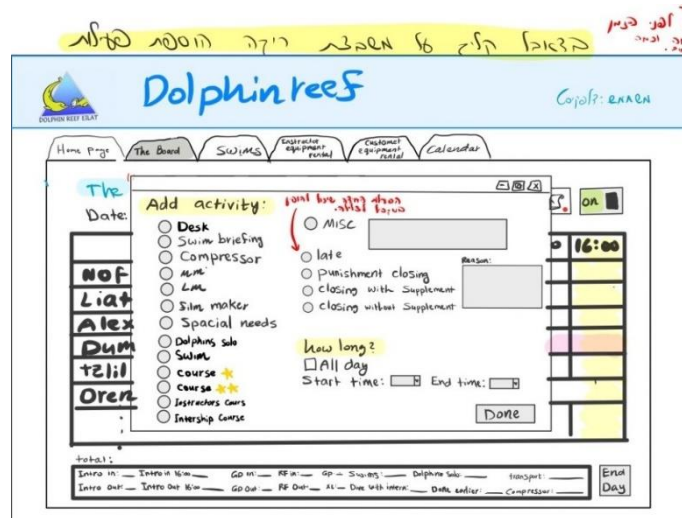 בדאבל קליק על משבצת ריקה הוספת פעילות
לפני הזמן
Dolphin reef
DOLPHIN REEF EILAT
Home page
The Board
Swims
Instructor equipment rental
Customer equipment rental
Calendar
The
Date:
on
Add activity:
Desk
Swim briefing
Compressor
Film maker
Spacial needs
Dolphins solo
Swim
Course
Course
Instructors Cours
Intership Course
Misc
late
punishment closing
closing with Supplement
closing without Supplement
Reason:
How long?
All day
Start time: End time:
Done
16:00
Nof
Liat
Alex
Dum
tzlil
Oren
total:
Intro in: Intro in 16:00 GP in: RF in: GP - Swims: Dolphins Solo: transport:
Intro Out: Intro Out 16:00 GP Out: RF Out: Done earlier: Compressor:
End Day